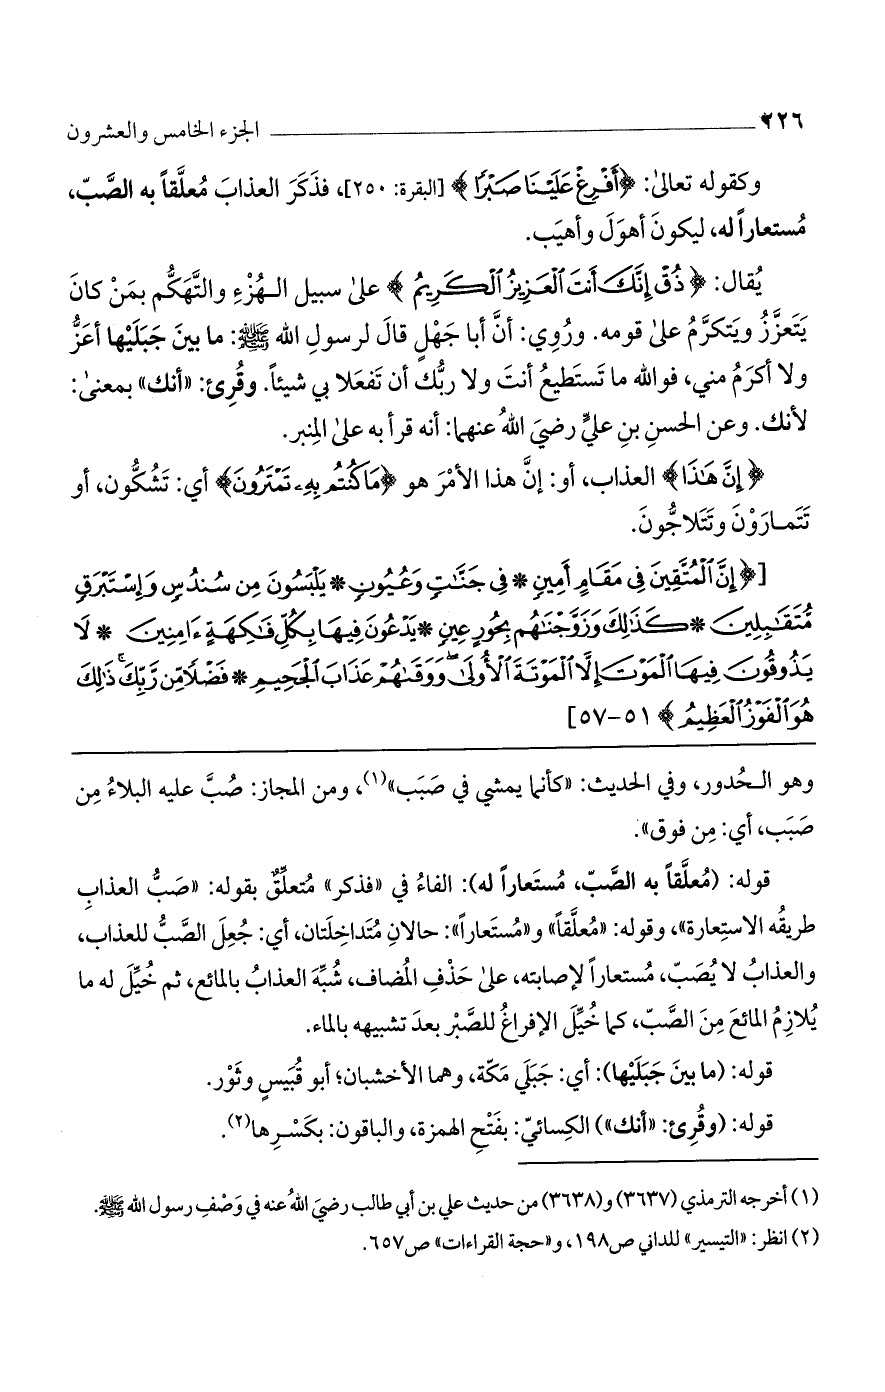 ٢٢٦ الجزء الخامس والعشرون
وكقوله تعالىٰ: ﴿أَفْرِغْ عَلَيْنَا صَبْرًا﴾ [البقرة: ٢٥٠]، فذَكَرَ العذابَ مُعلَّقاً به الصَّبّ،
مُستعاراً له، ليكونَ أهوَلَ وأهيَب.
يُقال: ﴿ذُقْ إِنَّكَ أَنتَ ٱلْعَزِيزُ ٱلْكَرِيمُ﴾ علىٰ سبيل الـهُزْءِ والتَّهكُّم بمَنْ كانَ
يَتَعزَّزُ ويَتكرَّمُ علىٰ قومه. ورُوِي: أنَّ أبا جَهْلٍ قالَ لرسولِ الله ﷺ: ما بينَ جَبَلَيْها أعَزُّ
ولا أكرَمُ مني، فوالله ما تَستَطيعُ أنتَ ولا ربُّك أن تَفعَلا بي شيئاً. وقُرِئ: «أنك» بمعنىٰ:
لأنك. وعن الحسنِ بنِ عليٍّ رضيَ اللهُ عنهما: أنه قرأ به علىٰ المِنبر.
﴿إِنَّ هَٰذَا﴾ العذاب، أو: إنَّ هذا الأمْرَ هو ﴿مَا كُنتُم بِهِۦ تَمْتَرُونَ﴾ أي: تَشكُّون، أو
تَتَمـارَوْنَ وتَتَلاجُّونَ.
[﴿إِنَّ ٱلْمُتَّقِينَ فِى مَقَامٍ أَمِينٍ * فِى جَنَّٰتٍ وَعُيُونٍ * يَلْبَسُونَ مِن سُندُسٍ وَإِسْتَبْرَقٍ
مُّتَقَٰبِلِينَ * كَذَٰلِكَ وَزَوَّجْنَٰهُم بِحُورٍ عِينٍ * يَدْعُونَ فِيهَا بِكُلِّ فَٰكِهَةٍ ءَامِنِينَ * لَا
يَذُوقُونَ فِيهَا ٱلْمَوْتَ إِلَّا ٱلْمَوْتَةَ ٱلْأُولَىٰ ۖ وَوَقَىٰهُمْ عَذَابَ ٱلْجَحِيمِ * فَضْلًا مِّن رَّبِّكَ ۚ ذَٰلِكَ
هُوَ ٱلْفَوْزُ ٱلْعَظِيمُ﴾ ٥١-٥٧]
وهو الـحُدور، وفي الحديث: «كأنما يمشي في صَبَب»(١)، ومن المجاز: صُبَّ عليه البلاءُ مِن
صَبَب، أي: مِن فوق».
قوله: (مُعلَّقاً به الصَّبّ، مُستَعاراً له): الفاءُ في «فذكر» مُتعلِّقٌ بقوله: «صَبُّ العذابِ
طريقُه الاستِعارة»، وقوله: «مُعلَّقاً» و«مُستَعاراً»: حالانِ مُتَداخِلَتان، أي: جُعِلَ الصَّبُّ للعذاب،
والعذابُ لا يُصَبّ، مُستعاراً لإصابته، علىٰ حَذْفِ المُضاف، شُبِّهَ العذابُ بالمائع، ثم خُيِّلَ له ما
يُلازِمُ المائعَ مِنَ الصَّبّ، كما خُيِّلَ الإفراغُ للصَّبْر بعدَ تشبيهه بالماء.
قوله: (ما بينَ جَبَلَيْها): أي: جَبَلَي مَكّة، وهما الأخشبان؛ أبو قُبَيسٍ وثَوْر.
قوله: (وقُرِئ: «أنك») الكِسائيّ: بفَتْحِ الهمزة، والباقون: بكَسْـرِها(٢).
(١) أخرجه الترمذي (٣٦٣٧) و(٣٦٣٨) من حديث علي بن أبي طالب رضيَ اللهُ عنه في وَصْفِ رسول الله ﷺ.
(٢) انظر: «التيسير» للداني ص١٩٨، و«حجة القراءات» ص٦٥٧.